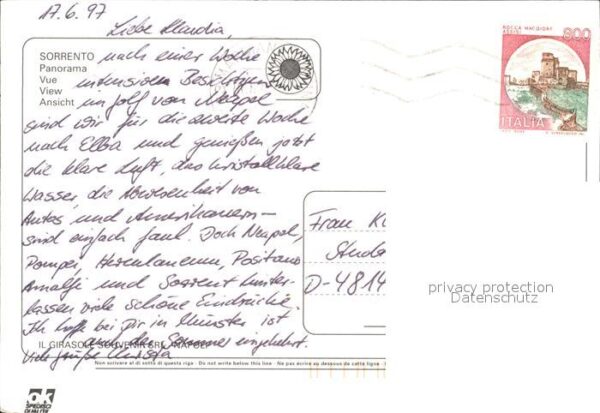 17.6.97
Liebe Klaudia,
nach einer Woche
intensiven Besichtigen
im Golf von Neapel
sind wir für die zweite Woche
nach Elba und genießen jetzt
die klare Luft, das kristallklare
Wasser, die Abwesenheit von
Autos und Amerikanern –
sind einfach faul. Doch Neapel,
Pompei, Herculaneum, Positano
Amalfi und Sorrent hinter-
lassen viele schöne Eindrücke.
Ich hoffe bei Dir in Münster ist
auch der Sommer eingekehrt.
Viele Grüße Christa
SORRENTO
Panorama
Vue
View
Ansicht
ROCCA MAGGIORE
ASSISI
800
ITALIA
Frau K
Studa
D-4814
privacy protection
Datenschutz
IL GIRASOLE SOUVENIR SRL - NAPOLI
Non scrivere al di sotto di questa riga - Do not write below this line - Ne pas écrire au dessous de cette ligne
ok
SPEDISCI
QUALITÀ